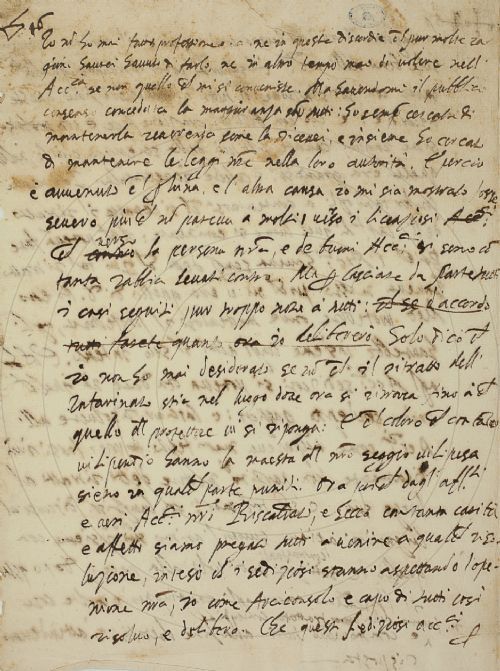 46
Io nō ho mai fatto professione ne in queste discordie che pur molte ra
gioni harei havuto di farlo, ne in altro tempo mai di volere nell
Acc.ia se non quello che mi si convenisse. Ma havendomi il pubblico
consenso conceduta la maggioranza sopra tutti: ho sempre cercato di
mantenerla reverenza come la ricevei, e insieme ho cercato
di mantenere le leggi nre nella loro autorità. E perciò
è avvenuto che l'altra causa io mi sia mostrato
severo più che nō pareva a molti
che verso la persona nra, e de buoni Acc.i si sono cō
tanta rabbia levati contro. Ma lasciare da parte
i casi seguiti pur troppo noti a tutti: d'accordo
tutti farete quanto ora io delibererò. Solo dico che
io non ho mai desiderato se nō che il ritratto dell
Infarinato stia nel luogo dove ora si ritrova, fino a che
quello del protettore vi si riponga: E che coloro che con tanto
vilipendio hanno la maestà del nro seggio vilipesa
sieno in qualche parte puniti. Ora poi che dagli afflitti
e cari Acc.i nri Riscaldato, e Secco con tanta carità
e affetti siamo pregati tutti a venire a qualche riso
luzione, inteso che i sediziosi stanno aspettando l'ope
nione nra, io come Arciconsolo e capo di tutti così
risolvo, e delibero. Che questi sediziosi acc.i